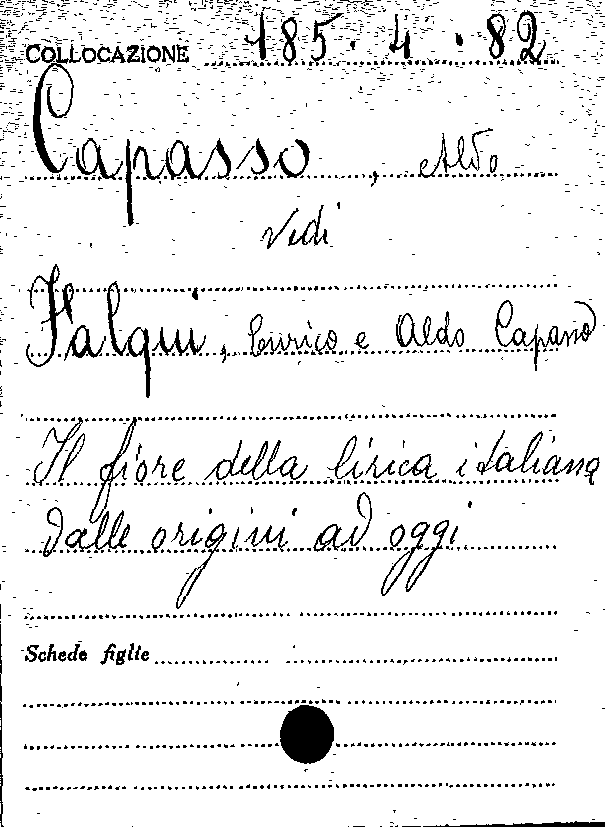 COLLOCAZIONE 185.4.82
Capasso, Aldo
Vedi
Falqui, Enrico e Aldo Capasso
Il fiore della lirica italiana
dalle origini ad oggi
Schede figlie